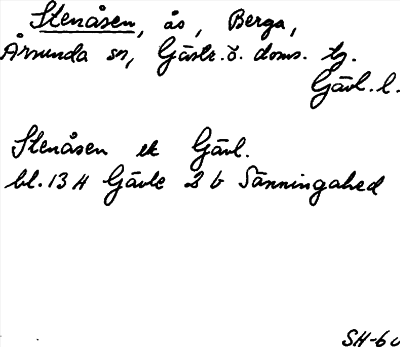 Stenåsen, ås, Berga,
Årsunda sn, Gästr. ö. doms. tg.
Gävl. l.
Stenåsen ek Gävl.
bl. 13 H Gävle 2 b Sänningahed
SH-60